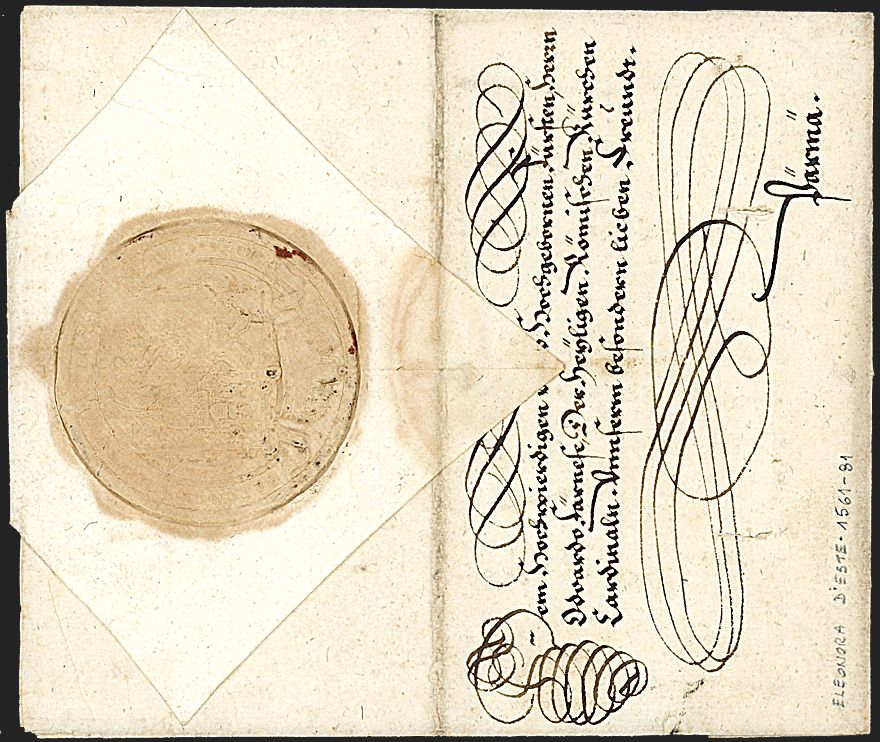 Dem Hochwierdigen Hochgebornen Fürsten, Herrn
Odoardo Farnese, Der Heyligen Römischen Kürchen
Cardinaln. Unnserm besondern lieben Freündt.
Parma.
ELEONORA D'ESTE - 1561-81